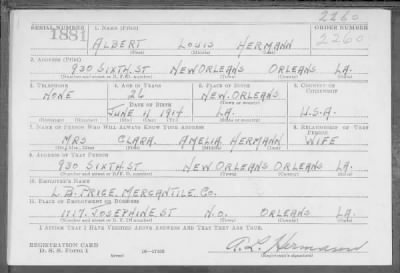 2260
SERIAL NUMBER 1. NAME (Print) ORDER NUMBER
1881 ALBERT LOUIS HERMANN 2260
(First) (Middle) (Last)
2. ADDRESS (Print)
930 SIXTH.ST NEW ORLEANS ORLEANS LA.
(Town) (County) (State)
3. TELEPHONE 4. AGE IN YEARS 5. PLACE OF BIRTH 6. COUNTRY OF CITIZENSHIP
NONE 26 NEW ORLEANS
DATE OF BIRTH (Town or county)
JUNE 11 1914 LA. U.S.A.
(Exchange) (Number) (Mo.) (Day) (Yr.) (State or country)
7. NAME OF PERSON WHO WILL ALWAYS KNOW YOUR ADDRESS 8. RELATIONSHIP OF THAT PERSON
MRS CLARA. AMELIA HERMANN WIFE
(Mr., Mrs., Miss) (First) (Middle) (Last)
9. ADDRESS OF THAT PERSON
930 SIXTH.ST NEW ORLEANS ORLEANS LA.
(Town) (County) (State)
10. EMPLOYER'S NAME
L.B. PRICE MERCANTILE. CO.
11. PLACE OF EMPLOYMENT OR BUSINESS
1717. JOSEPHINE.ST N.O. ORLEANS LA.
(Town) (County) (State)
I AFFIRM THAT I HAVE VERIFIED ABOVE ANSWERS AND THAT THEY ARE TRUE.
REGISTRATION CARD
D. S. S. Form 1 (over) A. L. Hermann
(Registrant's signature)